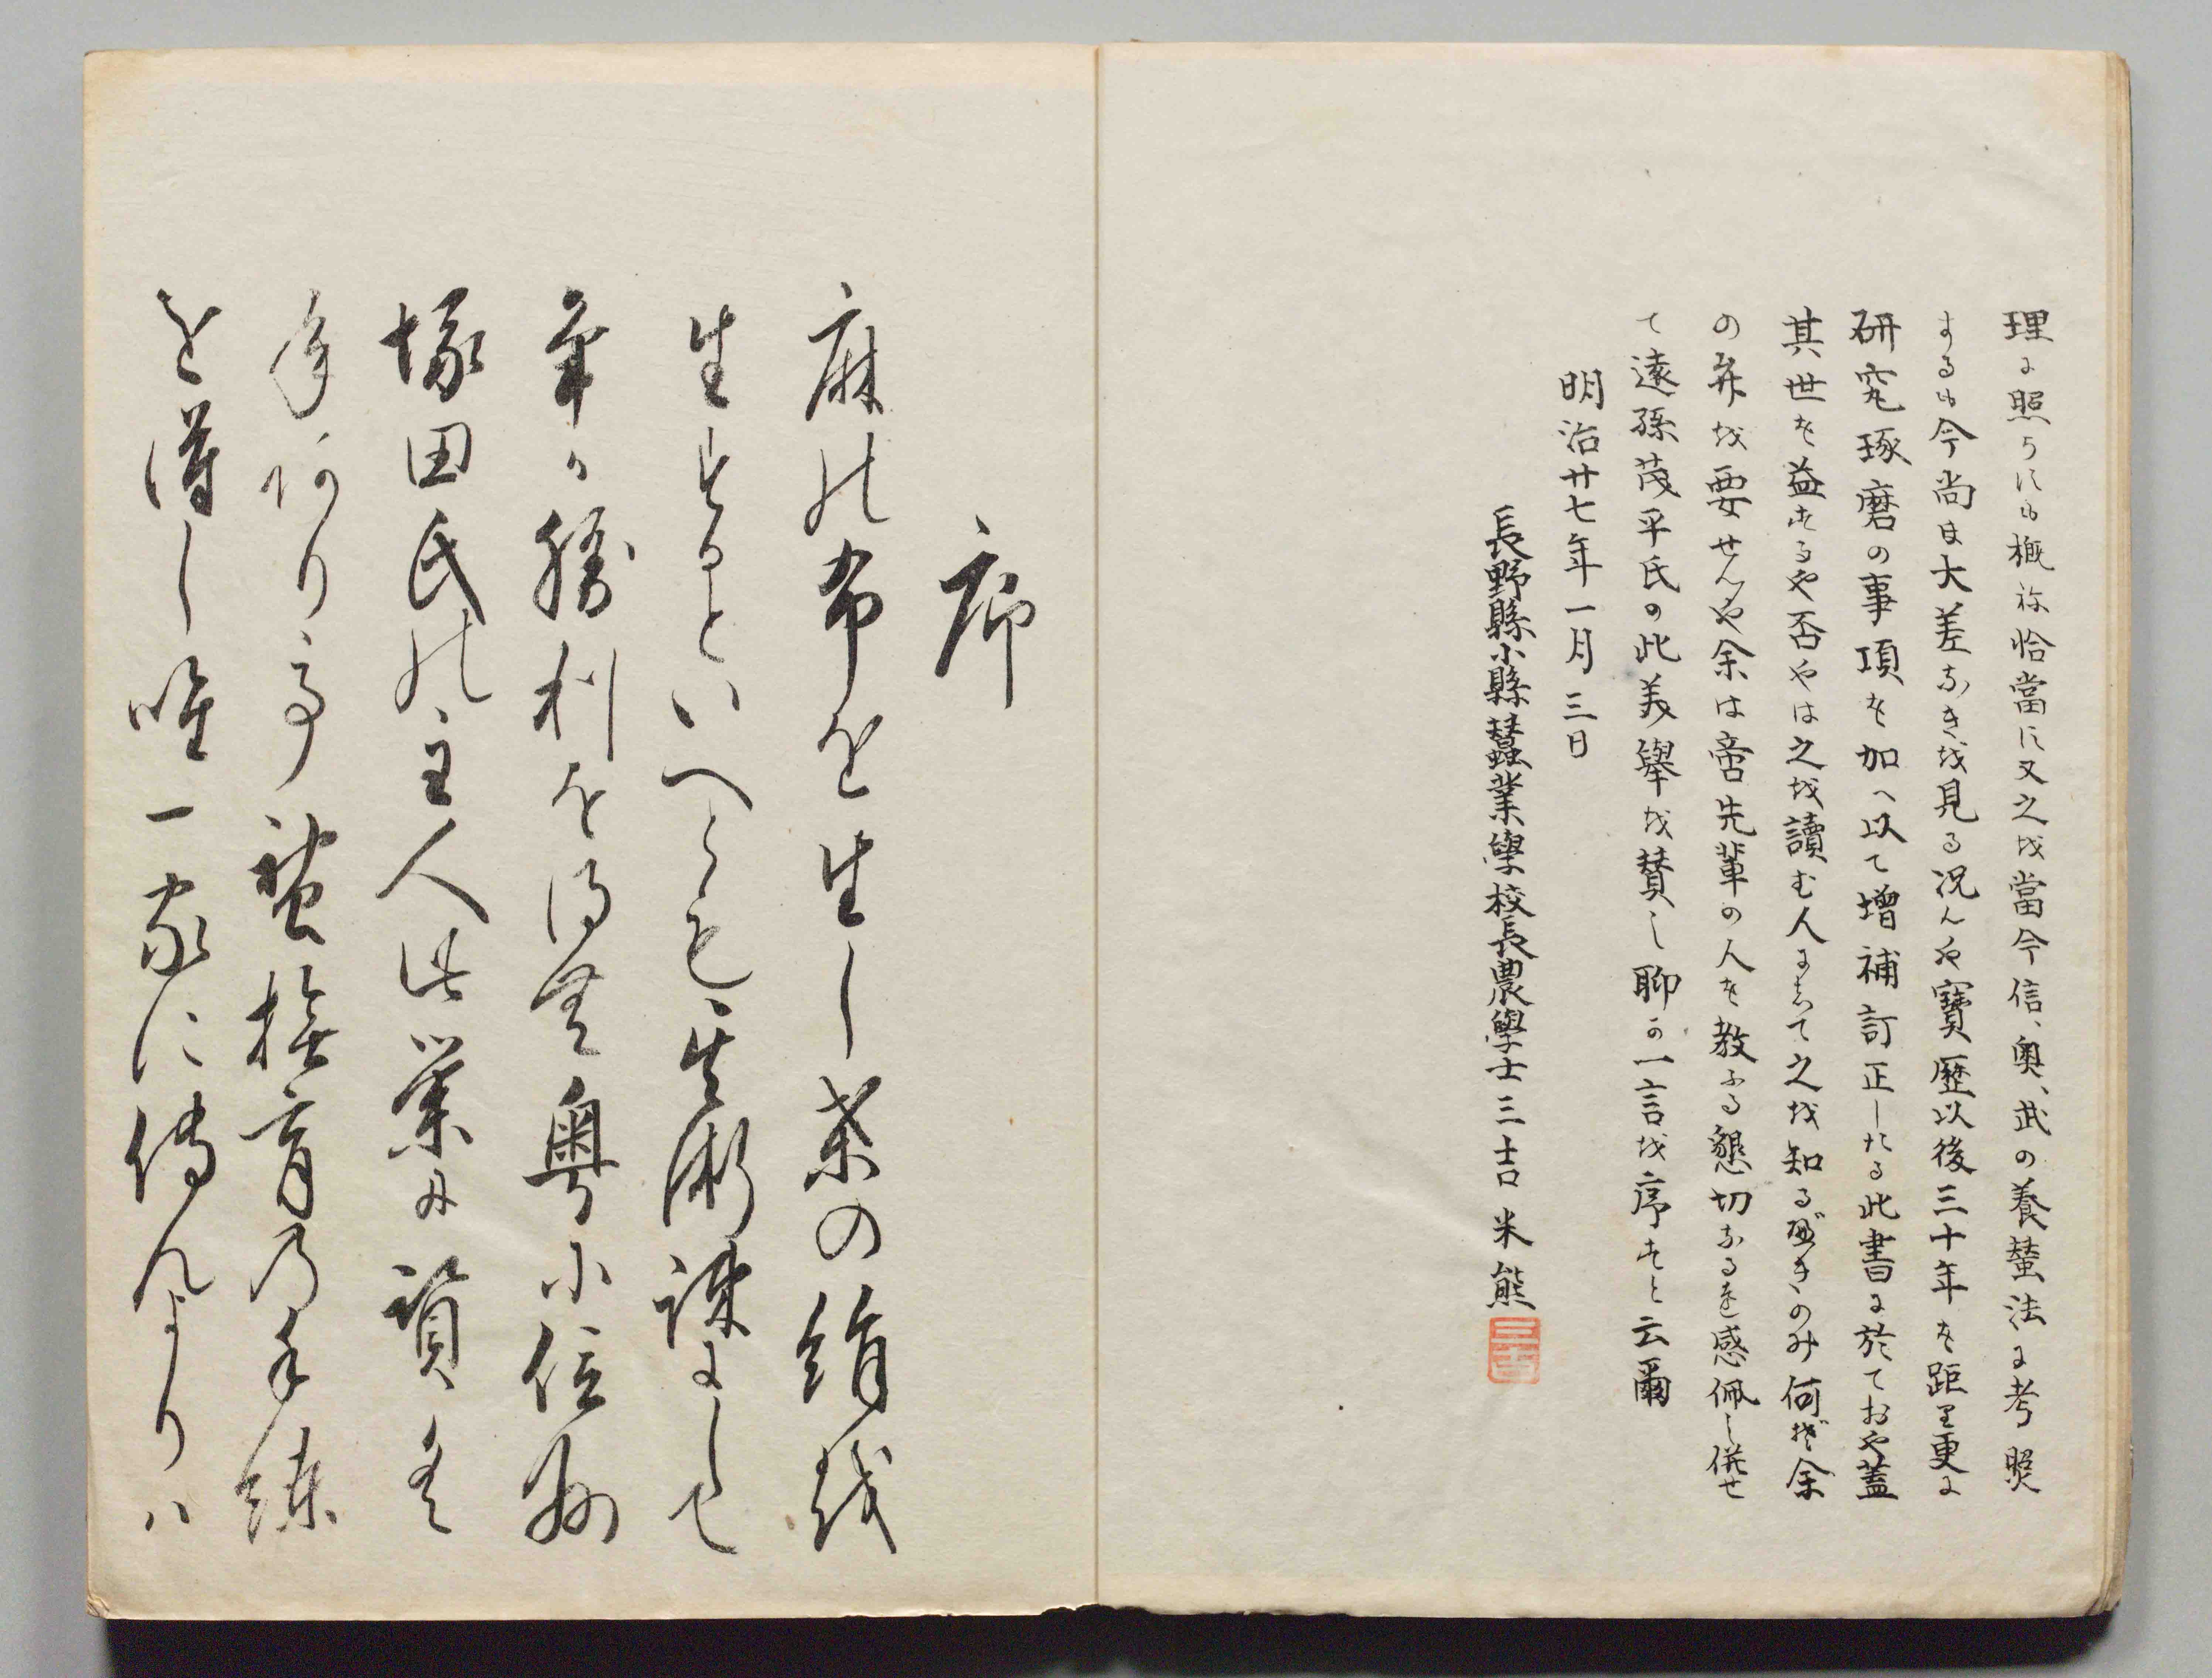 理に照らすも概ね恰當に又之を當今信、奥、武の養蚕法に考照
するも今尚ほ大差なきを見る况んや寶歷以後三十年を距り更に
研究琢磨の事項を加へ以て增補訂正したる此書に於ておや蓋
其世を益するや否やは之を讀む人にして之を知るべきのみ何ぞ余
の弁を要せんや余は啻先輩の人を教ふる懇切なるを感佩し併せ
て遠孫茂平氏の此美舉を賛し聊か一言を序すと云爾
明治廿七年一月三日
長野縣小縣蠶業學校長農學士三吉米熊
三吉
序
麻の布を生し桑の絹綫
生するといへとも其術疎にして
争か勝利を得む粤小信州
塚田氏の主人此業に讃
年あり亭蚕撫育乃手練
を得し唯一家に傳んよりハ